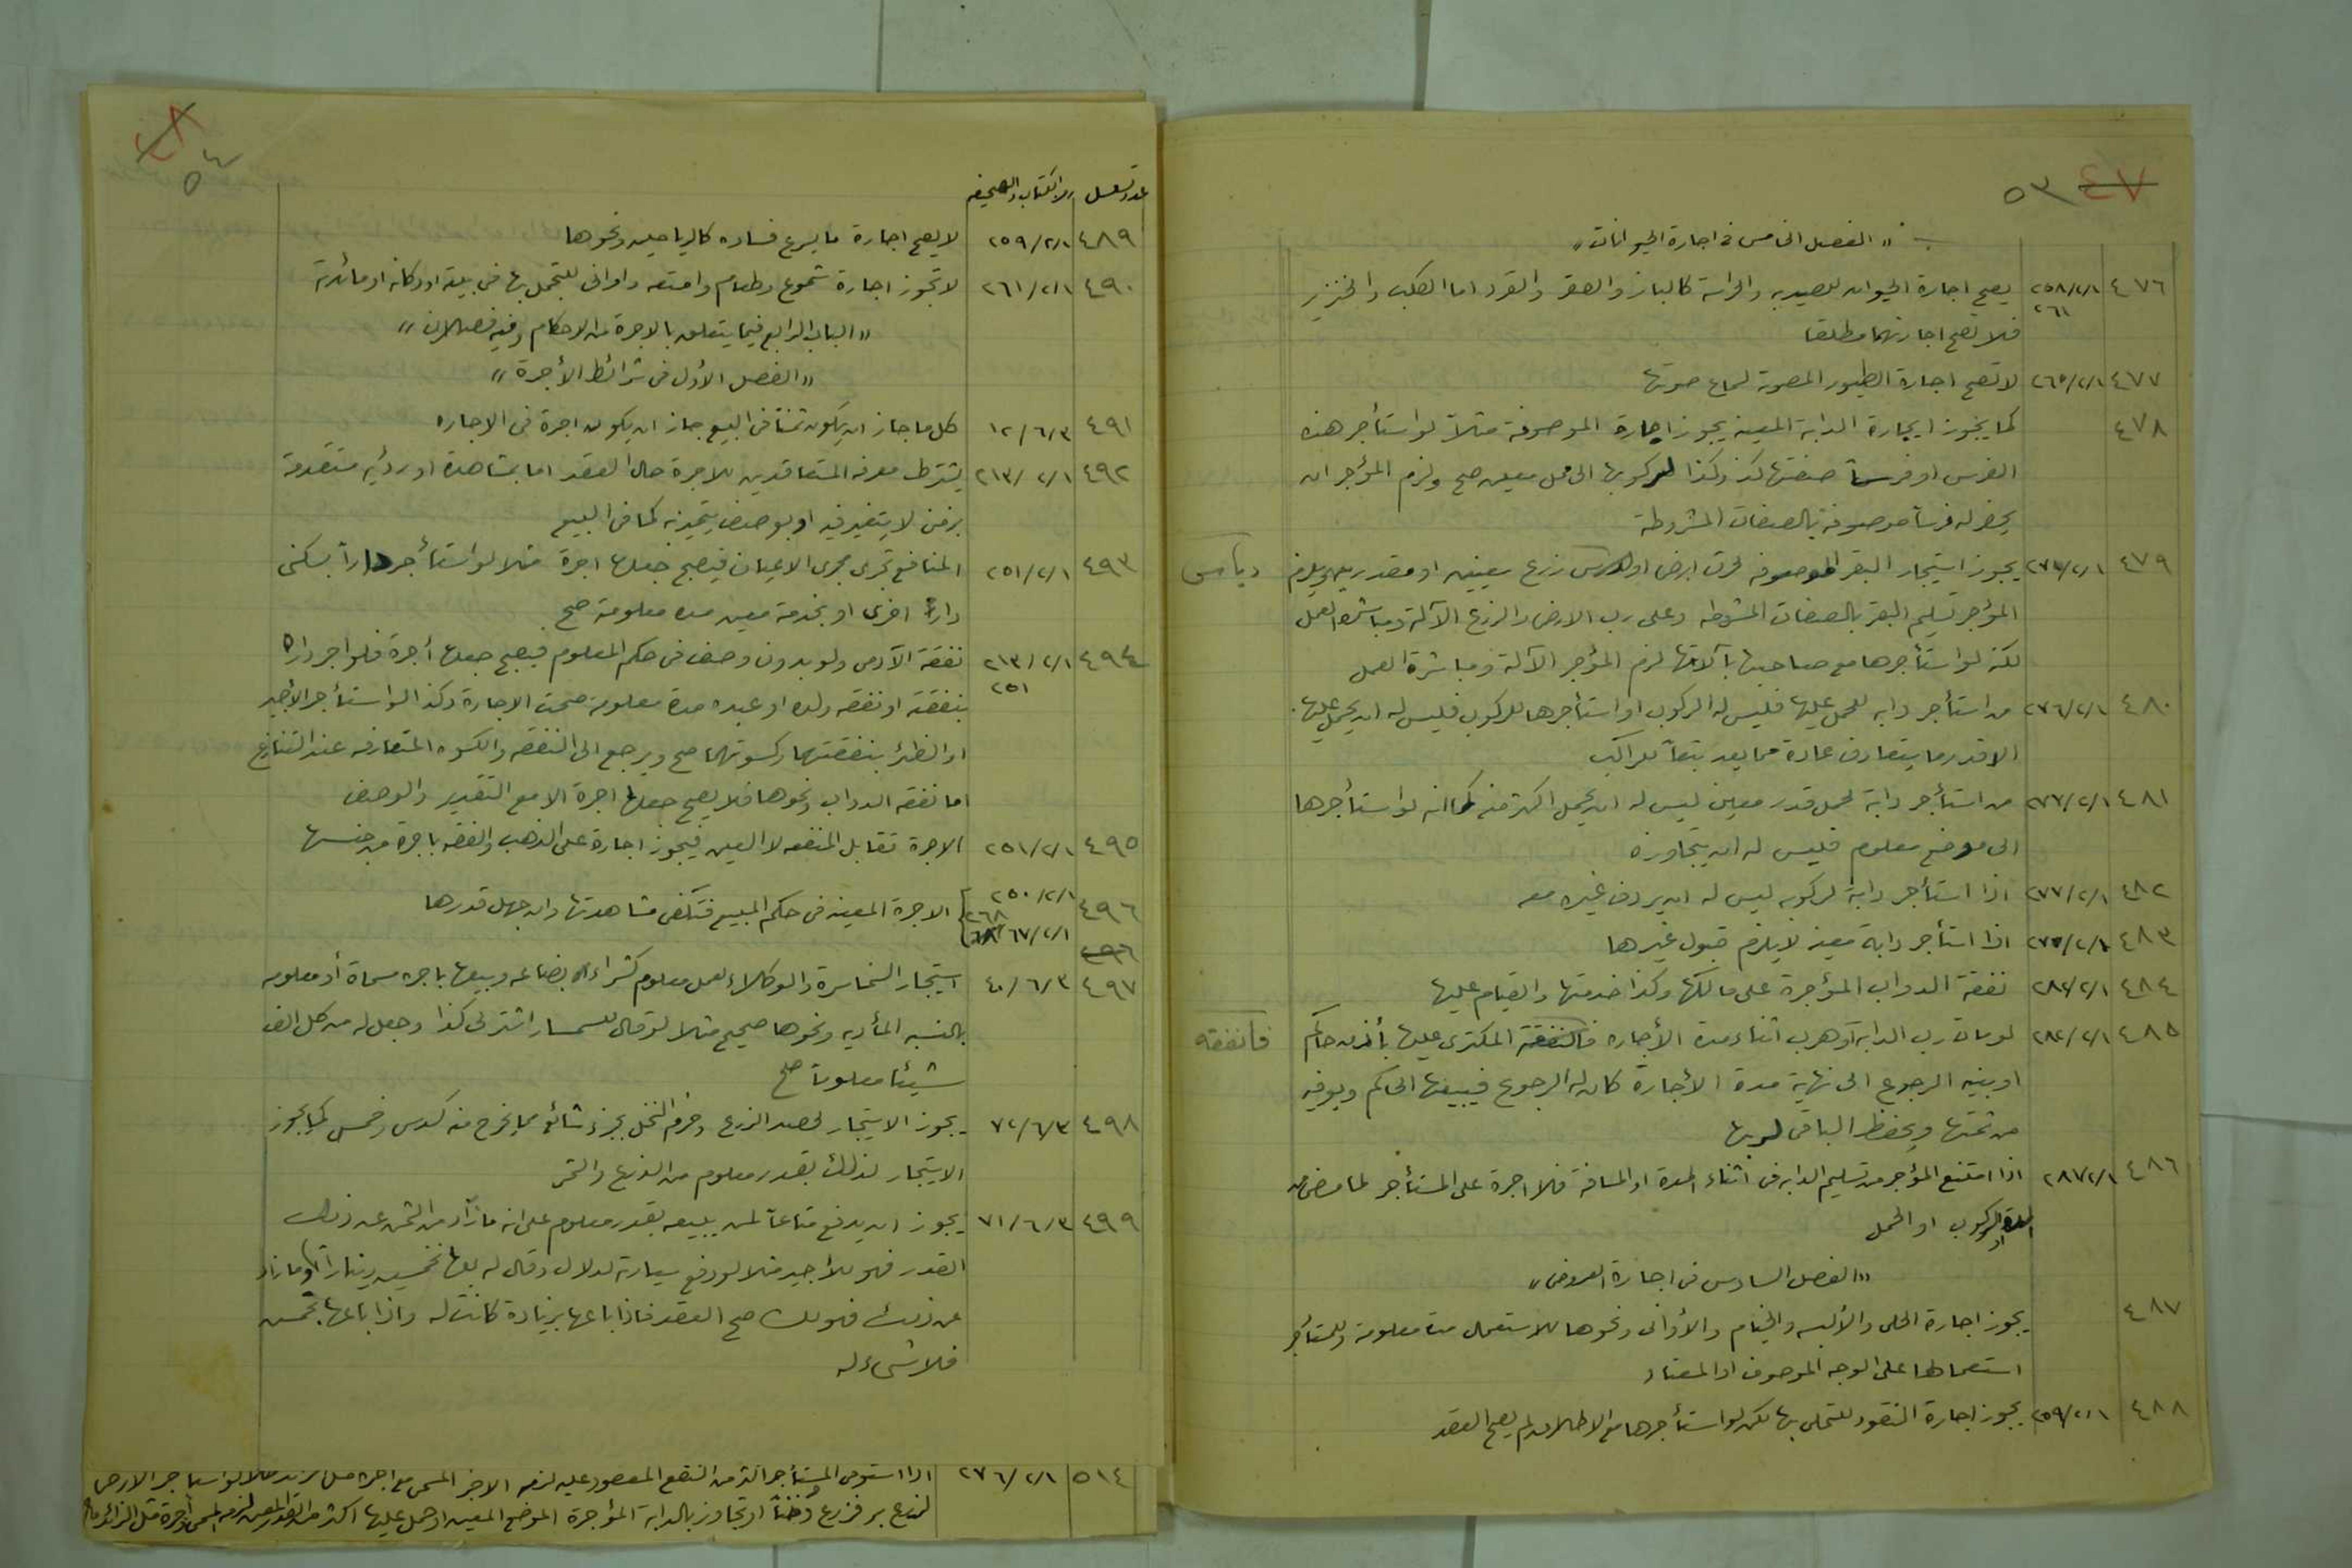 ٤٧ ٥٣
« الفصل الخامس في اجارة الحيوانات »
٤٧٦ ٢٥٨/٢/١ ٢٦١ يصح اجارة الحيوان للصيد به والحراسة كالباز والصقر والقرد اما الكلب والخنزير
فلا تصح اجارتهما مطلقا
٤٧٧ ٢٦٥/٢/١ لا تصح اجارة الطيور المصوتة لسماع صوتها
٤٧٨ كما يجوز ايجارة الدابة المعينه يجوز اجارة الموصوفة مثلاً لو استأجر هذه
الفرس او فرساً صفتها كذا وكذا لركوبها الى محل معين صح ولزم المؤجر ان
يحضر له فرساً موصوفة بالصفات المشروطة
٤٧٩ ٢٧٣/٢/١ يجوز استيجار البقر الموصوفه لحرث ارض او لدرس زرع بعينه او مقدر ويلزم دياس
المؤجر تسليم البقر بالصفات المشروطه وعلى رب الارض والزرع الآلة ومباشرة العمل
لكنه لو استأجرها مع صاحبها بآلاتها لزم المؤجر الآلة ومباشرة العمل
٤٨٠ ٢٧٦/٢/١ من استأجر دابه للحمل عليها فليس له الركوب او استأجرها للركوب فليس له ان يحمل عليها
الا قدر ما يتعارف عادة مما يعد تبعاً للراكب
٤٨١ ٢٧٧/٢/١ من استأجر دابة لحمل قدر معلين ليس له ان يحمل اكثر منه كما انه لو استأجرها
الى موضع معلوم فليس له ان يتجاوزه
٤٨٢ ٢٧٧/٢/١ اذا استأجر دابة لركوبه ليس له ان يردف غيره معه
٤٨٣ ٢٧٥/٢/١ اذا استأجر دابة معينه لا يلزم قبول غيرها
٤٨٤ ٢٨٢/٢/١ نفقة الدواب المؤجرة على مالكها وكذا خدمتها والقيام عليها
٤٨٥ ٢٨٢/٢/١ لو مات رب الدابه او هرب اثناء مدة الأجاره فالنفقة المكترى عليها بأذن حاكم فانفقه
او بنيه الرجوع الى نهاية مدة الأجارة كان له الرجوع فيبيعها الحاكم ويوفيه
من ثمنها ويحفظ الباقي لربها
٤٨٦ ٢٨٧/٢/١ اذا امتنع المؤجر من تسليم الدابه في اثناء المدة او المسافة فلا اجرة على المستأجر لما مضى من
المدة او الركوب او الحمل
« الفصل السادس في اجارة العروض »
٤٨٧ يجوز اجارة الحلي والألبسه والخيام والأواني ونحوها للاستعمال مدة معلومة وللمستأجر
استعمالها على الوجه الموصوف او المعتاد
٤٨٨ ٢٥٩/٢/١ يجوز اجارة النقود للتحلي بها لكن لو استأجرها مع الاطلاق لم يصح العقد
٤٨ ٥٤
عدد تسلسل رمز الكتاب والصحيفه
٤٨٩ ٢٥٩/٢/١ لا يصح اجارة ما يسرع فساده كالرياحين ونحوها
٤٩٠ ٢٦١/٢/١ لا تجوز اجارة شموع وطعام وامتعه واواني للتجمل بها في بيته او دكانه او مائدته
« الباب الرابع فيما يتعلق بالاجرة من الاحكام وفيه فصلان »
« الفصل الأول في شرائط الأجرة »
٤٩١ ١٢/٦/٣ كل ما جاز ان يكون ثمناً في البيع جاز ان يكون اجرة في الاجاره
٤٩٢ ٢١٣/٢/١ يشترط معرفه المتعاقدين للاجرة حال العقد اما بمشاهدة او رؤيه متقدمة
بزمن لا يتغير فيه او بوصف يتميز به كما في البيع
٤٩٣ ٢٥١/٢/١ المنافع تجرى مجرى الاعيان فيصح جعلها اجرة مثلا لو استأجر داراً بسكنى
دار اخرى او بخدمة معين مده معلومة صح
٤٩٤ ٢١٣/٢/١ ٢٥١ نفقة الآدمي ولو بدون وصف في حكم المعلوم فيصح جعلها أجرة فلو اجر داره
بنفقته او نفقه ولده او عبده مدة معلومة صحت الاجارة وكذا لو استأجر الأجير
او الظئر بنفقتهما وكسوتهما صح ويرجع الى النفقه والكسوه المتعارفه عند التنازع
اما نفقه الدواب ونحوها فلا يصح جعلها اجرة الا مع التقدير والوصف
٤٩٥ ٢٥١/٢/١ الاجرة تقابل المنفعه لا العين فيجوز اجارة على الذهب والفضه باجرة من جنسها
٤٩٦ ٢٥٠/٢/١ ٢٦٨ ٦٧/٢/١ ٦٨ الاجرة المعينه في حكم المبيع فتكفي مشاهدتها وان جهل قدرها
٤٩٦
٤٩٧ ٤٠/٦/٣ استيجار السماسرة والوكلاء لعمل معلوم كشراء بضاعه وبيعها باجره مسماة أو معلومه
بالنسبه المأويه ونحوها صحيح مثلا لو قال للسمسار اشتر لي كذا وجعل له من كل الف
شيئا معلوماً صح
٤٩٨ ٧٢/٦/٣ يجوز الاستيجار لحصد الزرع وخرم النخل بجزء شائع مما يخرج منه كسدس وخمس كما يجوز
الاستيجار لذلك بقدر معلوم من الزرع والتمر
٤٩٩ ٧١/٦/٣ يجوز ان يدفع متاعاً لمن يبيعه بقدر معلوم على انه ما زاد من الثمن عن ذلك
القدر فهو للأجير مثلا لو دفع سيارته لدلال وقال له بعها بخمسين ديناراً وما زاد
عن ذلك فهو لك صح العقد فاذا باعها بزيادة كانت له واذا باعها بخمسين
فلا شيء له
٥١٤ ٢٧٦/٢/١ اذا استوفى المستأجر اكثر من النفع المعقود عليه لزمه الاجر المسمى مع اجرة مثل الزائد مثلا لو استأجر الارض
لزرع بر فزرع دخناً او تجاوز بالدابة المؤجرة الموضع المعين او حمل عليها اكثر من القدر المعين لزمه المسمى واجرة مثل الزائد